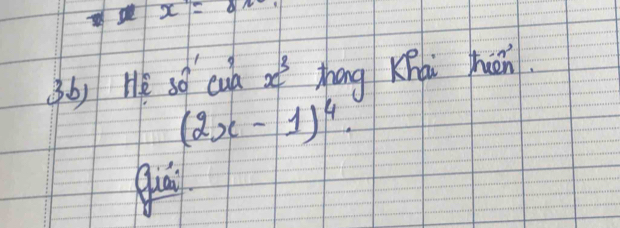 x =
3b) Hệ số của x³ trong khai triển.
(2x - 1)⁴.
Giải.